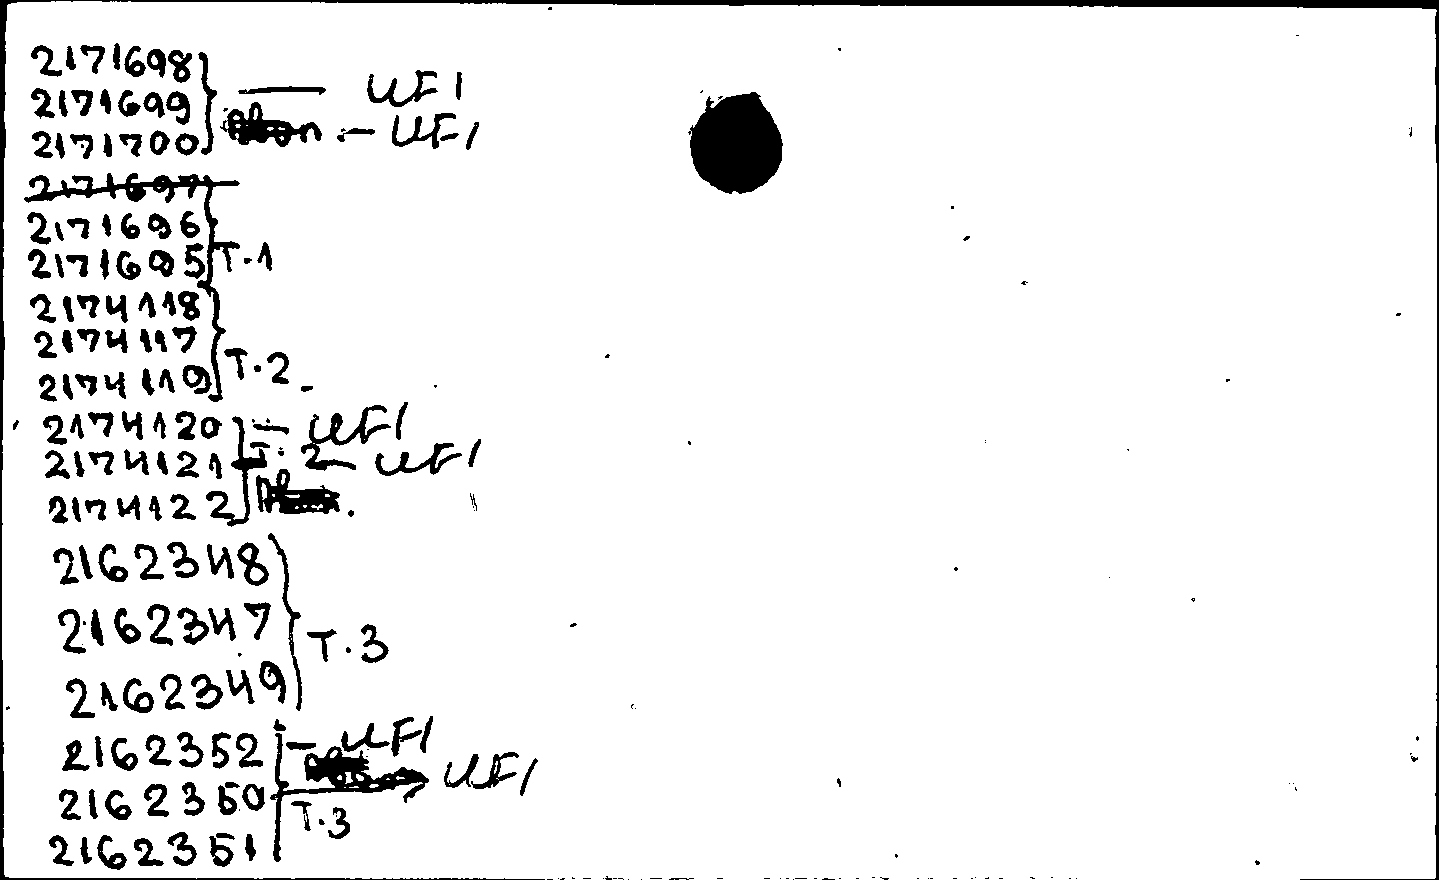 2171698
2171699 — UF1
2171700 — UF1
2171697
2171696
2171695 T.1
2174118
2174117
2174119 T.2
2174120 — UF1
2174121 T.2 — UF1
2174122
2162348
2162347
2162349 T.3
2162352 — UF1
2162350 UF1
2162351 T.3